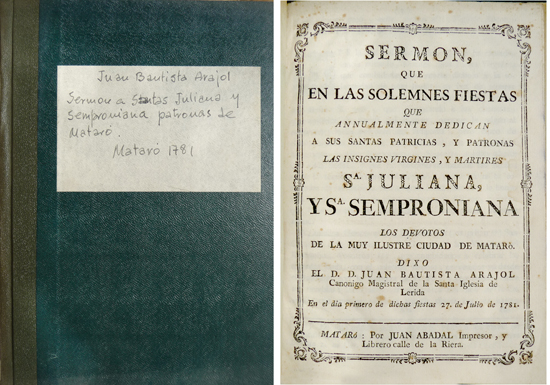 Juan Bautista Arajol
Sermon a Santas Juliana y
Semproniana patronas de
Mataró.
Mataró 1781
SERMON,
QUE
EN LAS SOLEMNES FIESTAS
QUE
ANNUALMENTE DEDICAN
A SUS SANTAS PATRICIAS, Y PATRONAS
LAS INSIGNES VIRGINES, Y MARTIRES
Sᴬ. JULIANA,
Y Sᴬ. SEMPRONIANA
LOS DEVOTOS
DE LA MUY ILUSTRE CIUDAD DE MATARÒ.
DIXO
EL D. D. JUAN BAUTISTA ARAJOL
Canonigo Magistral de la Santa Iglesia de
Lerida
En el dia primero de dichas fiestas 27. de Julio de 1781.
MATARÓ: Por JUAN ABADAL Impresor, y
Librero calle de la Riera.